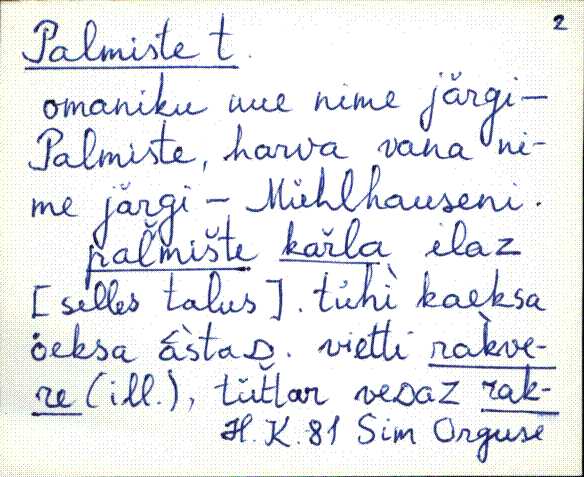 2
Palmiste t.
omaniku uue nime järgi –
Palmiste, harva vana ni-
me järgi – Mühlhauseni.
pal̆miš̆te kar̆la elaz
[selles talus]. tühì kaeksa
öeksa àstaD. vietti ràkve-
re (ill.), tüt̆lar veDaz rak-
H. K. 81 Sim Orguse